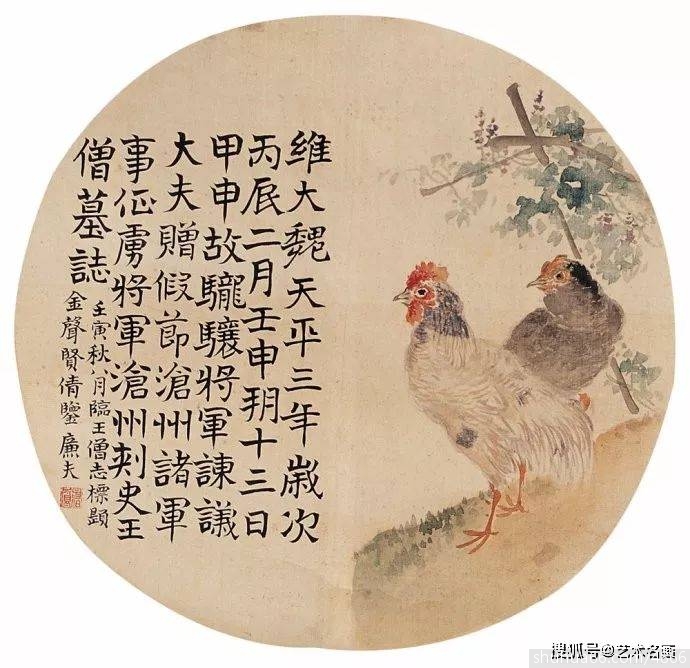 維大魏天平三年歲次
丙辰二月壬申玥十三日
甲申故驪驤將軍諫議
大夫贈假莭滄州諸軍
事征虜將軍滄州刾史王
僧墓誌
壬寅秋八月臨王僧志標題
金聲賢倩鑒 廉夫
搜狐号@艺术名画